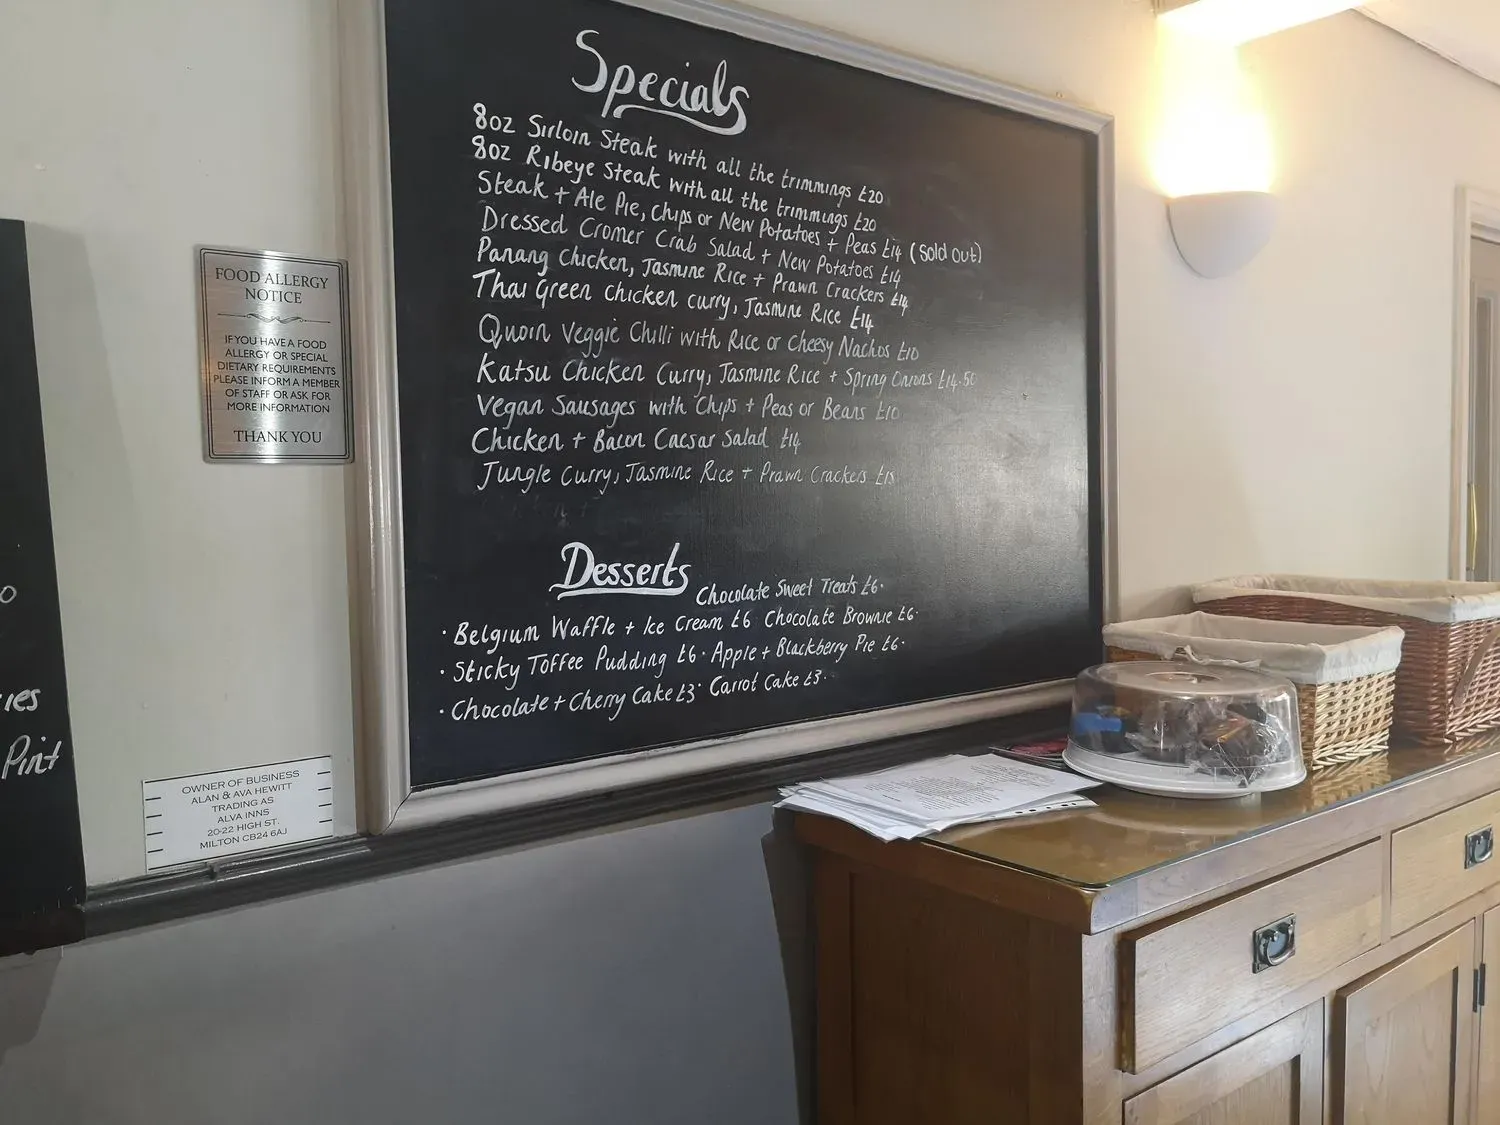 Specials
8oz Sirloin Steak with all the trimmings £20
8oz Ribeye Steak with all the trimmings £20
Steak + Ale Pie, Chips or New Potatoes + Peas £14 (Sold Out)
Dressed Cromer Crab Salad + New Potatoes £14
Panang Chicken, Jasmine Rice + Prawn Crackers £14
Thai Green Chicken Curry, Jasmine Rice £14
Quorn Veggie Chilli with Rice or Cheesy Nachos £10
Katsu Chicken Curry, Jasmine Rice + Spring Onions £14.50
Vegan Sausages with Chips + Peas or Beans £10
Chicken + Bacon Caesar Salad £14
Jungle Curry, Jasmine Rice + Prawn Crackers £15
Desserts
Chocolate Sweet Treats £6.
· Belgium Waffle + Ice Cream £6 Chocolate Brownie £6.
· Sticky Toffee Pudding £6. Apple + Blackberry Pie £6.
· Chocolate + Cherry Cake £3. Carrot Cake £3.
FOOD ALLERGY
NOTICE
IF YOU HAVE A FOOD
ALLERGY OR SPECIAL
DIETARY REQUIREMENTS
PLEASE INFORM A MEMBER
OF STAFF OR ASK FOR
MORE INFORMATION
THANK YOU
OWNER OF BUSINESS
ALAN & AVA HEWITT
TRADING AS
ALVA INNS
20-22 HIGH ST.
MILTON CB24 6AJ
ies
Pint